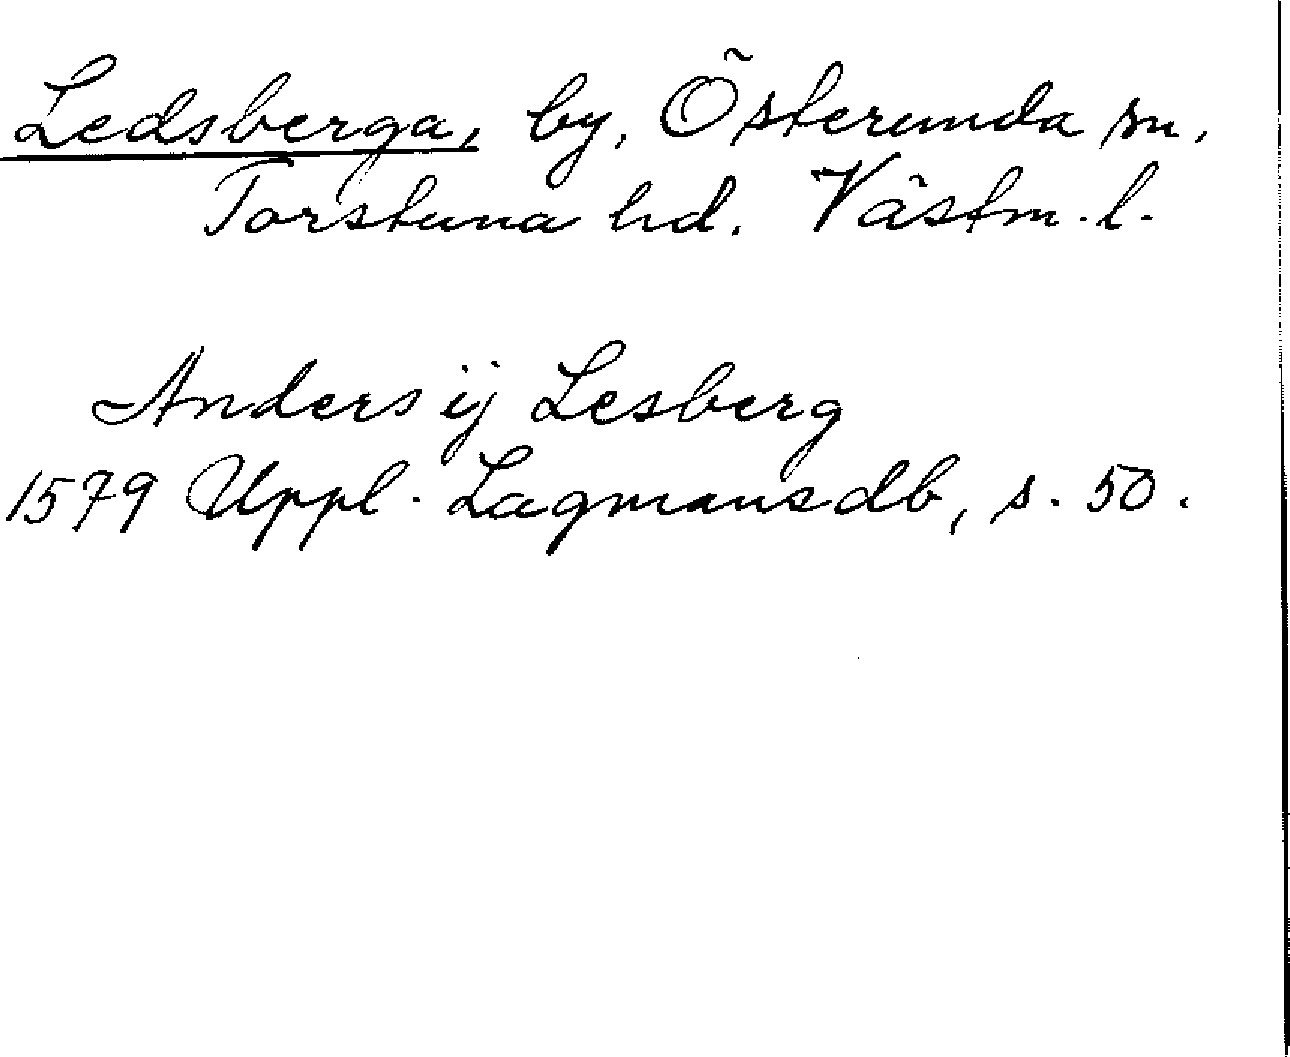 Ledsberga, by, Österunda sn,
Torstuna hd. Västm. l.
Anders ij Lesberg
1579 Uppl. Lagmansdb, s. 50.